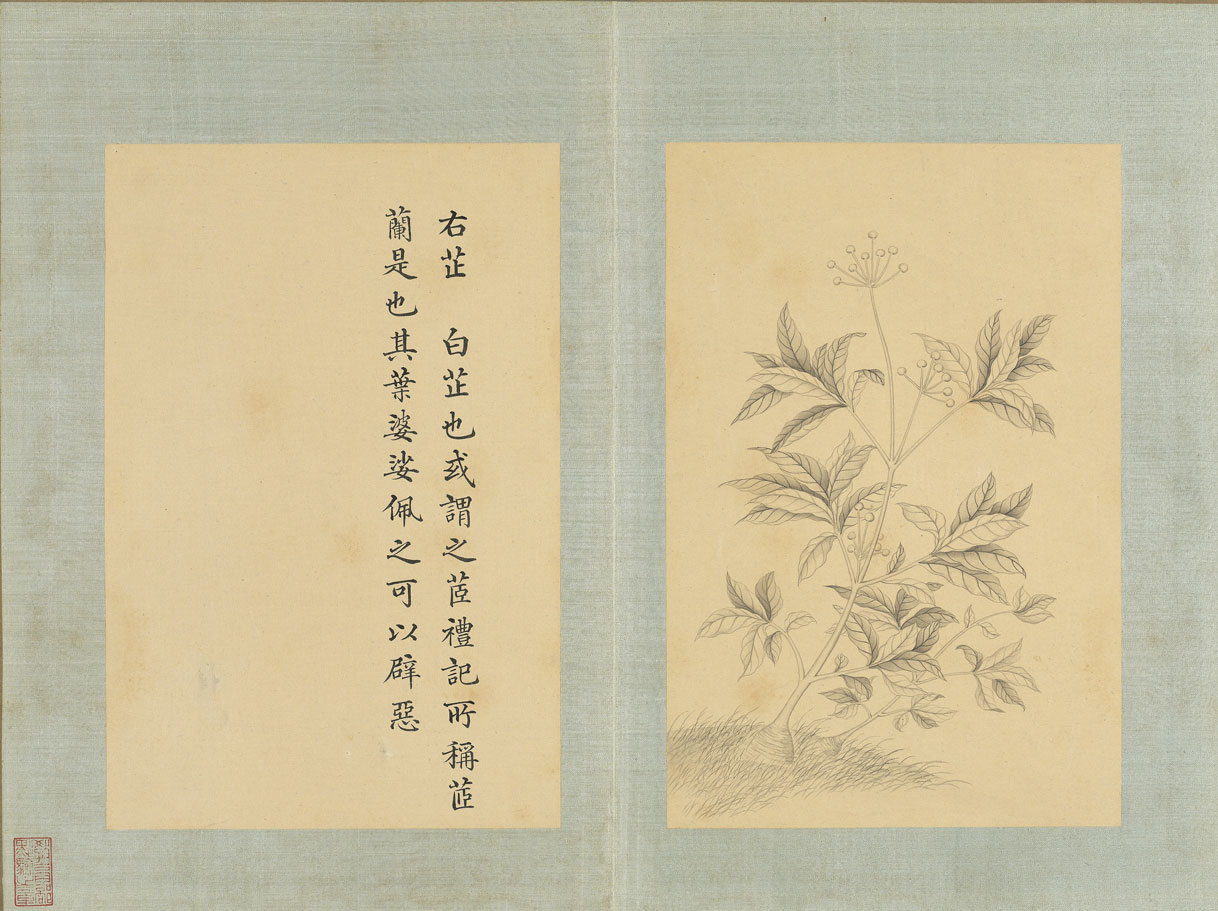 右芷 白芷也或謂之茝禮記所稱茝
蘭是也其葉婆娑佩之可以辟惡